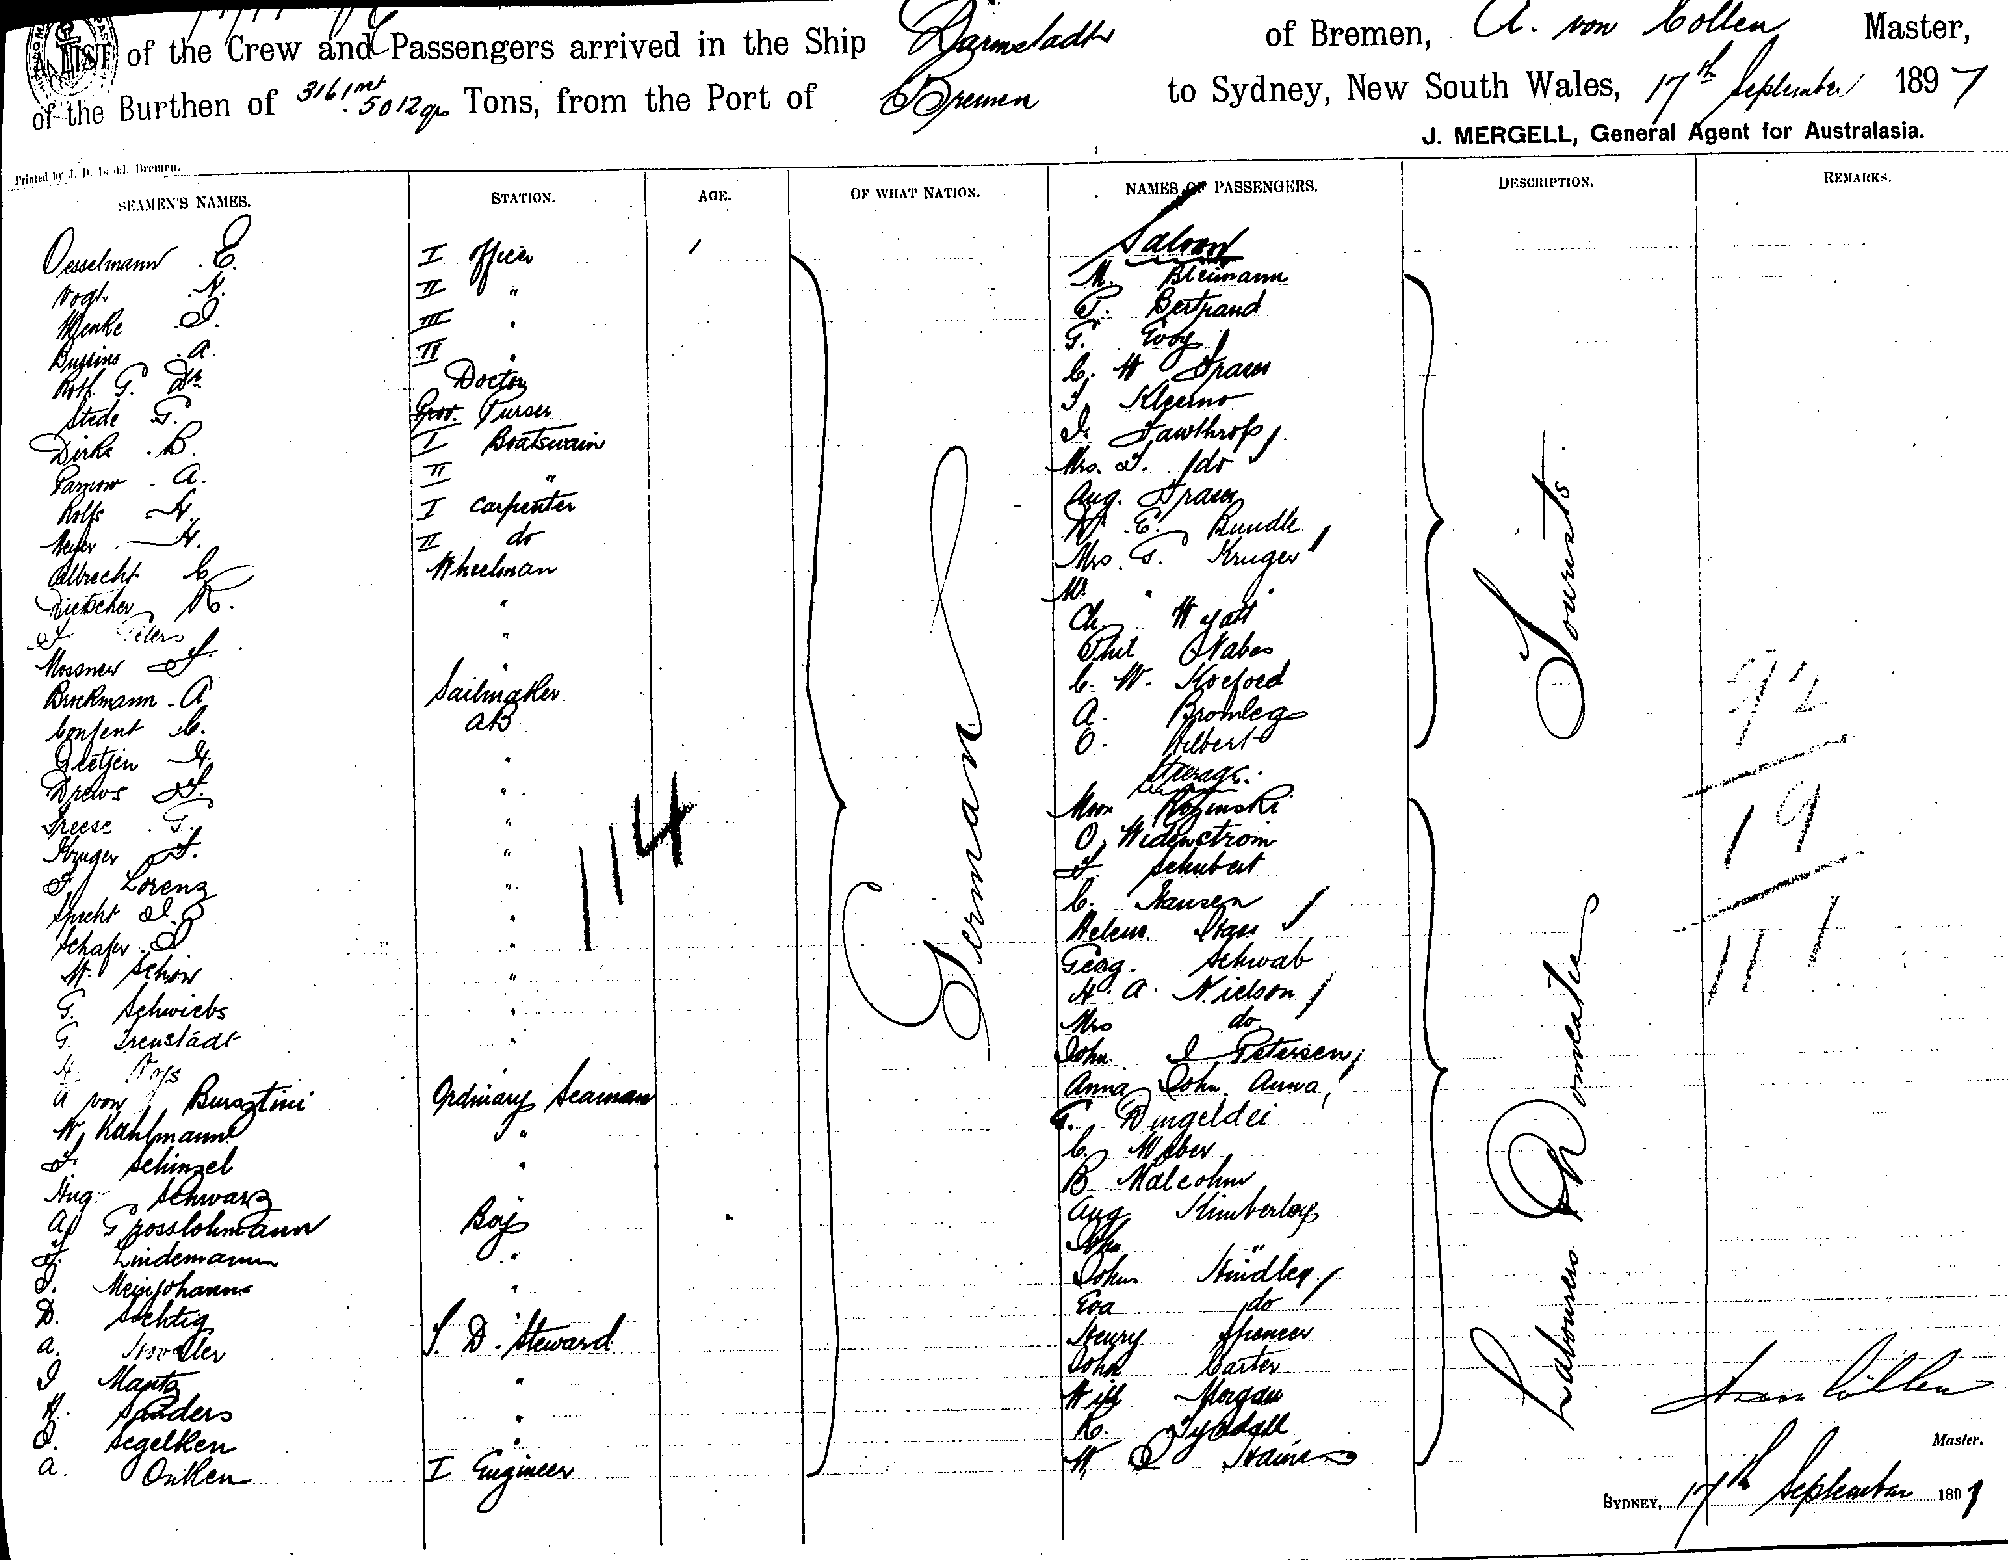 A LIST of the Crew and Passengers arrived in the Ship Darmstadt of Bremen, A. von Cöllen Master,
of the Burthen of 3161 nt 5012 gr Tons, from the Port of Bremen to Sydney, New South Wales, 17th September 1897
J. MERGELL, General Agent for Australasia.
Printed by J. D. Bremen.
SEAMEN'S NAMES. STATION. AGE. OF WHAT NATION. NAMES OF PASSENGERS. DESCRIPTION. REMARKS.
Saloon
Oesselmann E. I officer M. Bleimann
Vogt N. II " P. Bertrand
Menke J. III " G.
A. IV " C. W
Roth G. Dr Doctor
Stede G. Prov. Purser J. Fawthrop
Dirks B. I Boatswain Mrs. J. do
A. II " Aug.
Rolfs H. I Carpenter W. E. Rundle
Meyer H. II do Mrs. G. Kruger
Albrecht C. Wheelman M. "
Dietscher R. " Ch. Wyatt
J Peters " Phil Nabes
Mossner F. " C. W. Koeford
Brockmann A Sailmaker A. Bromley
Consent C. AB O. Hilbert
Steerage.
Gloetjen H. "
Drews F. " Moon Rozinski
Freese G. " O. Widenstrom
Kruger F. " F Schubert
F Lorenz " C. Hansen
Specht J. " Helene
Schafer J " Georg. Schwab
W. Schön " H A. Nielson
G. Schwiebs " Mrs do
G. Freustadt " John J Petersen
H Voss Anna John Anna
A von Bursztini Ordinary Seaman G. Dingeldei
W. Kahlmann " C. Weber
F Schinzel " B Malcohm
Aug Schwarz Aug Kimberley
A Grosslohmann Boy Mrs "
F. Lindemann " John Hindley
J. Meinjohanns " Eva do
D. Sechtig Henry Spencer
A. S. D. Steward John Carter
J Mantz " Will Morgan
H. Sanders " R. Tyndall
J. Segelken " W. J Haines
A. Onken I Engineer
German
Tourists.
Labourers & Domestic
114
92
19
111
A von Cöllen
Master.
SYDNEY, 17th September 1897